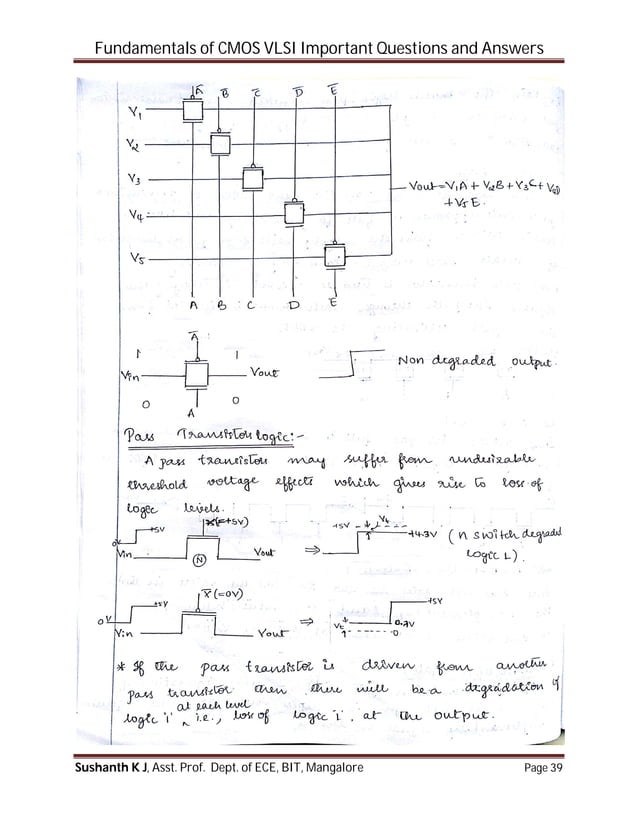 Fundamentals of CMOS VLSI Important Questions and Answers
A̅ B̅ C̅ D̅ E̅
V1
V2
V3
V4
V5
Vout=V1A + V2B + V3C + V4D
+ V5E.
A B C D E
A̅
1 1
Vin Vout
Non degraded output.
0 0
A
Pass Transistor logic:-
A pass transistor may suffer from undesirable
threshold voltage effects which gives rise to loss of
logic levels.
X(=+5V)
+5V
0V
Vin
N
Vout
⇒
+5V
Vt
+4.3V
(n switch degraded
logic 1).
X̅ (=0V)
+5V
0V
Vin
Vout
⇒
+5V
Vt
0.7V
0
* If the pass transistor is driven from another
pass transistor then there will be a degradation of
logic '1' at each level i.e., loss of logic '1' at the output.
Sushanth K J, Asst. Prof. Dept. of ECE, BIT, Mangalore Page 39